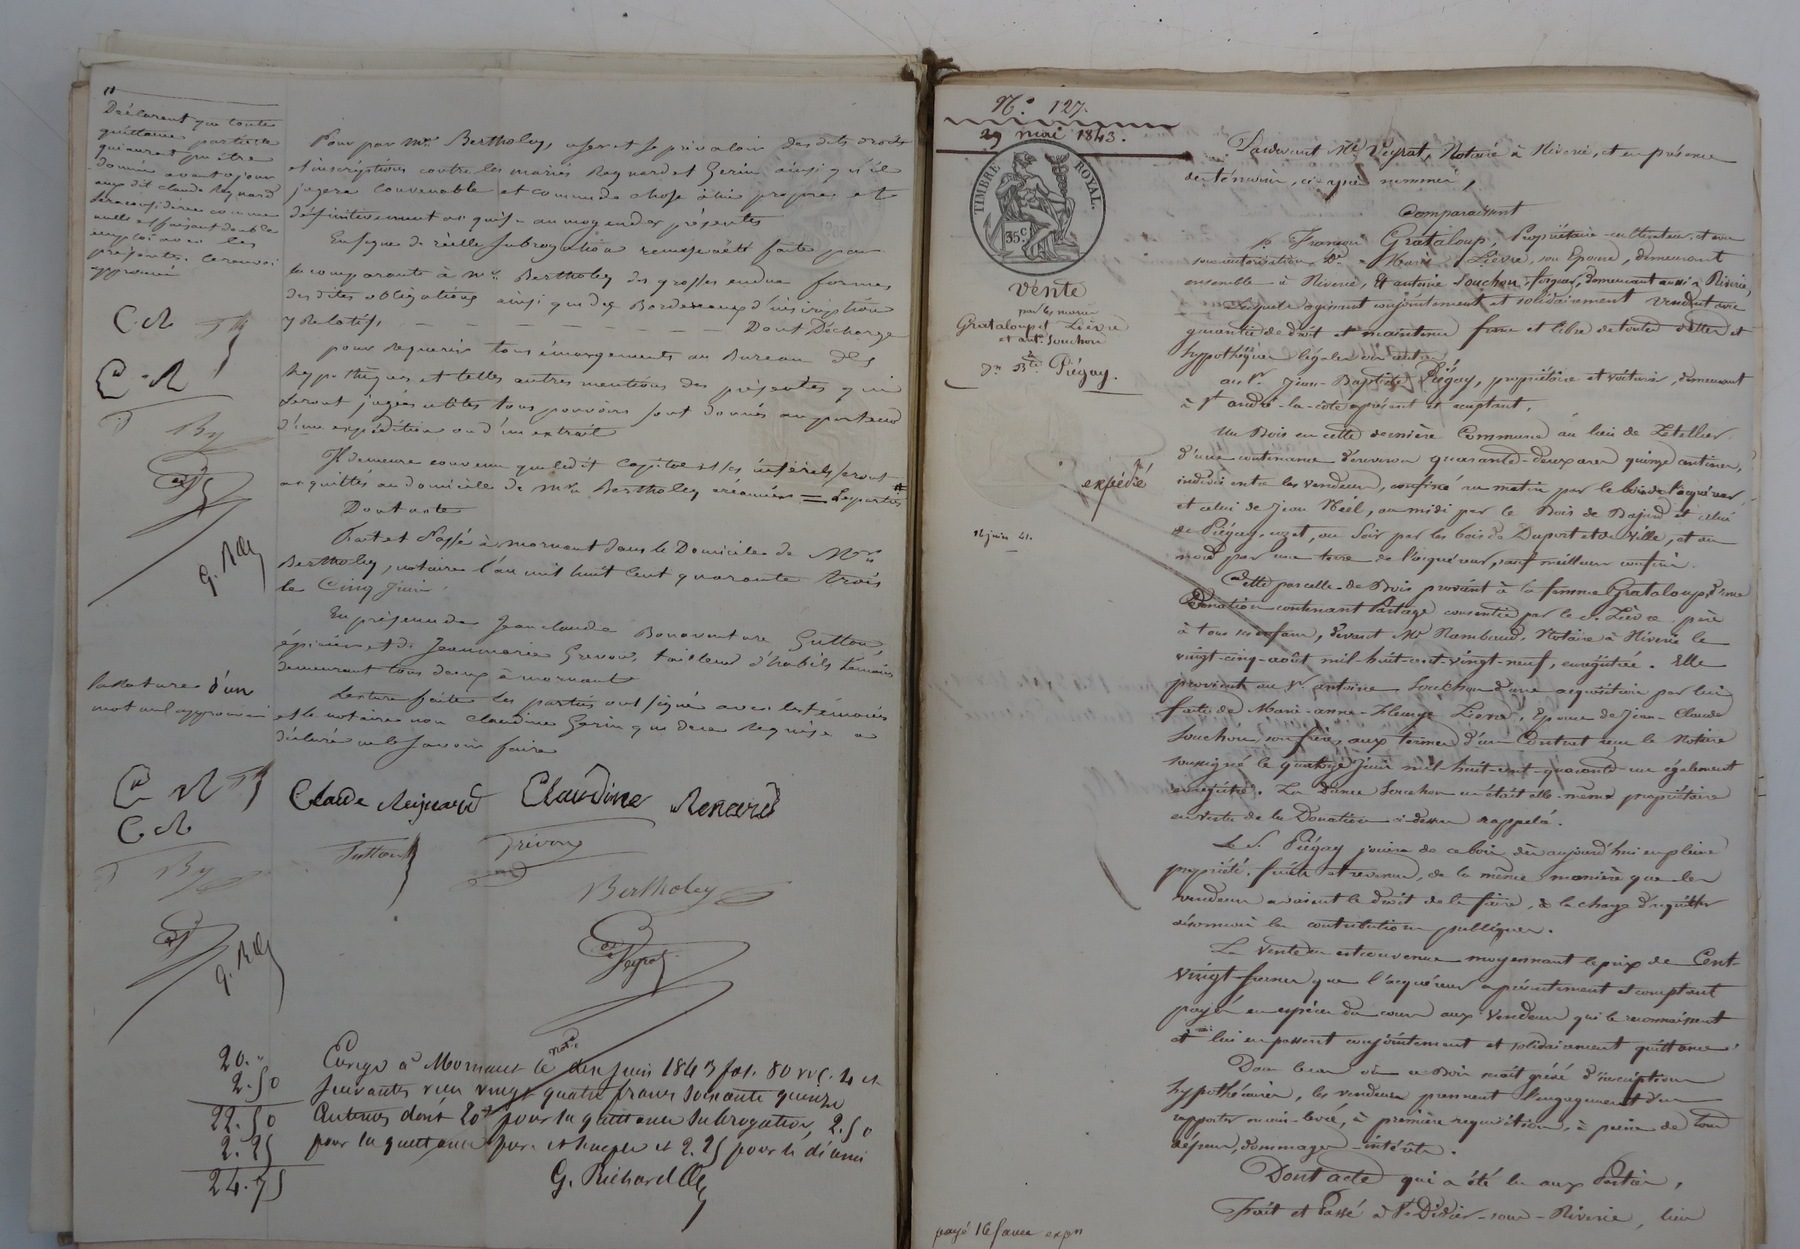 Déclarent que toute
quittance particulière
qui aurait pu être
donnée avant ce jour
au dit Claude Reynard
sera considérée comme
nulle et faisant double
emploi avec les
présentes. Ce renvoi
approuvé
C. R
C - R
By
G. R
la rature d'un
mot nul approuvée
C R
C. R
By
G. R
Pour par Mr. Bertholey, user et se prévaloir des dits droits
et inscriptions contre les mariés Reynard et Gerin ainsi qu'il
jugera convenable et comme de chose à lui propre et
définitivement acquise au moyen des présentes
En signe de réelle subrogation remise a été faite par
la comparante à Mr. Bertholey des grosses en due forme
des dites obligations ainsi que des Bordereaux d'inscription
y relatifs, — — — — — — Dont Décharge
pour requerir tous émargements au Bureau des
hypothèques et telles autres mentions des présentes qui
seront jugées utiles tous pouvoirs sont donnés au porteur
d'une expédition ou d'un extrait
Il demeure convenu que le dit Capital et les intérêts seront
acquittés au domicile de Mr. Bertholey créancier = Les parties
Dont acte
Fait et Passé à Mornant dans le Domicile de Mr.
Bertholey, notaire l'an mil huit cent quarante trois
le Cinq Juin
En présence de Jean Claude Bonaventure Gutton,
épicier et de Jean marie Grevon, tailleur d'habits témoins
demeurant tous deux à mornant
Lecture faite les parties ont signé avec les témoins
et le notaire non Claudine Gerin qui de ce requise a
déclaré ne le savoir faire
Claude Reynard Claudine Renard
Gutton Grévon
Bertholey
Peyrat
20. "
2. 50
22. 50
2. 25
24. 75
Enreg. à Mornant le dix Juin 1843 fol. 80 V. C. 4 et
suivantes reçu vingt quatre francs soixante quinze
centimes dont 20f pour la quittance subrogation, 2. 50
pour la quittance pure et simple et 2. 25 pour le décime
G. Richard
N.º 127.
29 mai 1843.
TIMBRE ROYAL.
35 c
Vente
par les mariés
Grataloup et Lièvre
et ant. Souchon
à Bte Piégay.
expédié
14 juin 41.
Pardevant Me Peyrat, Notaire à Riverie, et en présence
de témoins, ci-après nommés,
Comparaissent
Sr François Grataloup, Propriétaire-cultivateur, et sous
son autorisation De Marie Lièvre, son Epouse, demeurant
ensemble à Riverie, Et antoine Souchon, forgeur, demeurant aussi à Riverie,
Lesquels agissant conjointement et solidairement vendent avec
garantie de droit et maintenue ferme et libre de toutes dettes et
hypothèques légales ou autres
au Sr. Jean-Baptiste Piégay, propriétaire et voiturier, demeurant
à St andré-la-côte ici présent et acceptant,
Un Bois en cette dernière Commune au lieu de Letellier
d'une contenance d'environ quarante-deux ares quinze centiares,
indivis entre les vendeurs, confiné au matin par le bois de l'acquéreur
et celui de Jean Néél, au midi par le Bois de Bajard et celui
de Piégay-uzet, au soir par les bois de Duport et de Ville, et au
nord par une terre de l'acquéreur, sauf meilleurs confins.
Cette parcelle de Bois provient à la femme Grataloup d'une
Donation contenant Partage consentie par le S. Lièvre père
à tous ses enfans, devant Me Rambaud, Notaire à Riverie le
vingt-cinq-août mil-huit-cent-vingt-neuf, enregistrée. Elle
provient au Sr. antoine Souchon d'une acquisition par lui
faite de Marie-anne-Fleurye Lièvre, Epouse de Jean-Claude
Souchon, son frère, aux termes d'un Contrat reçu le Notaire
soussigné le quatorze Juin mil-huit-cent-quarante-un également
enregistré. La Dame Souchon en était elle-même propriétaire
en vertu de la Donation ci-dessus rappelée.
Le S. Piégay jouira de ce bois dès aujourd'hui en pleine
propriété, fruits et revenus, de la même manière que les
vendeurs avaient le droit de le faire, à la charge d'acquitter
désormais les contributions publiques.
La Vente en est convenue moyennant le prix de Cent-
Vingt francs que l'acquéreur a présentement et comptant
payés en espèces du cours aux Vendeurs qui le reconnaissent
et lui en passent conjointement et solidairement quittance.
Dans le cas où ce Bois serait grévé d'inscriptions
hypothécaires, les vendeurs prennent l'engagement d'en
rapporter main-levée, à première requisition, à peine de tous
dépens, dommages-intérêts.
Dont acte qui a été lu aux Parties,
Fait et Passé à St Didier-sous-Riverie, lieu
payé 16 francs expn